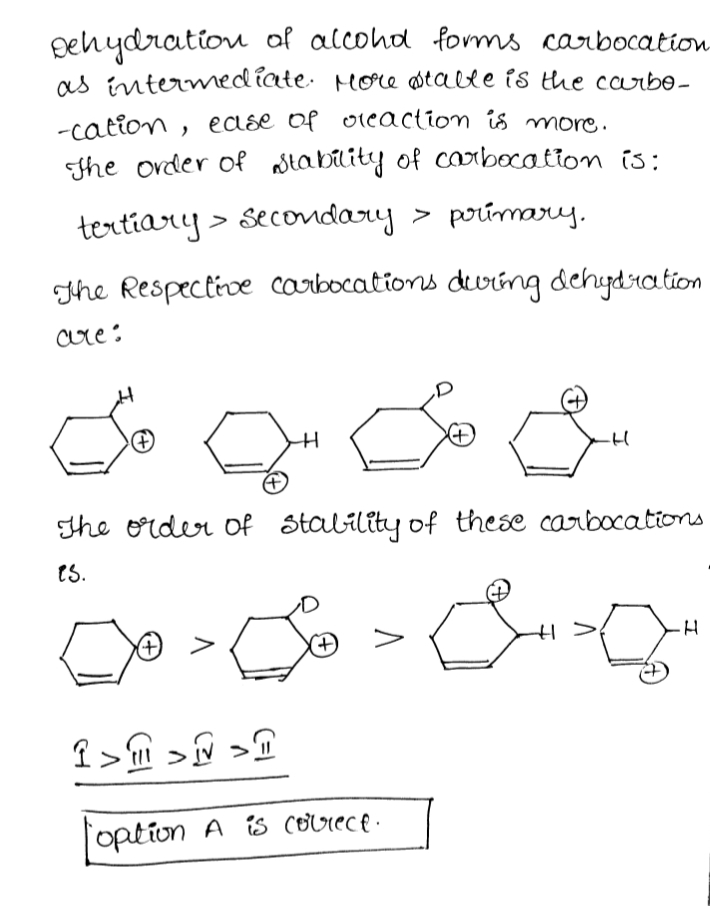 Dehydration of alcohol forms carbocation
as intermediate. More stable is the carbo-
-cation, ease of reaction is more.
The order of stability of carbocation is:
tertiary > secondary > primary.
The Respective carbocations during dehydration
are:
H + H + D + + H
The order of stability of these carbocations
is.
+ > D + > + H > H +
I > III > IV > II
option A is correct.